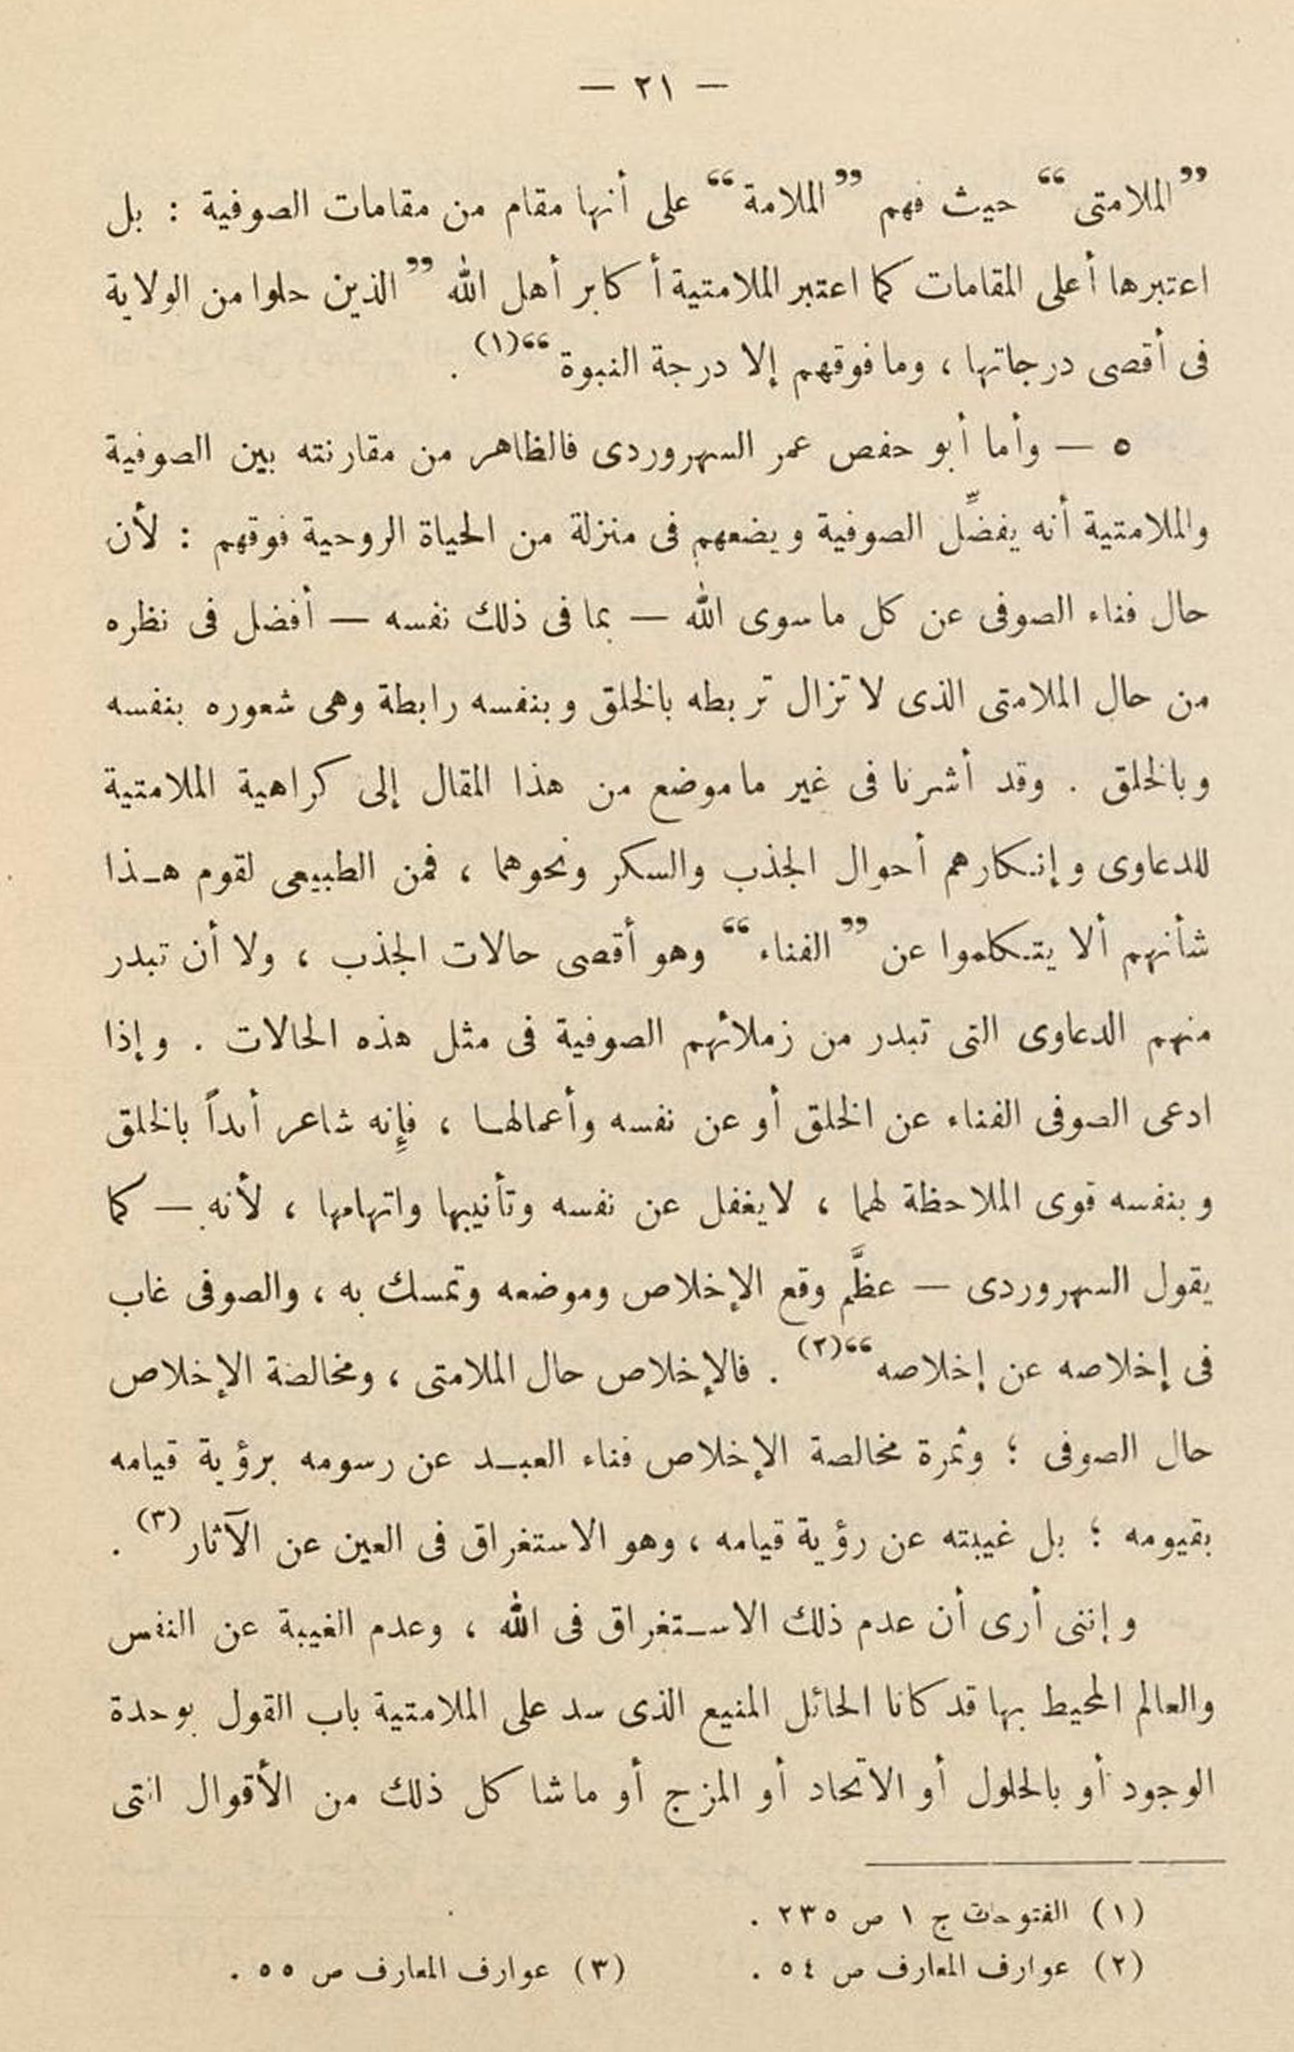 — ٢١ —
”الملامتى“ حيث فهم ”الملامة“ على أنها مقام من مقامات الصوفية : بل
اعتبرها أعلى المقامات كما اعتبر الملامتية أكابر أهل الله ”الذين حلوا من الولاية
فى أقصى درجاتها ، وما فوقهم إلا درجة النبوة“(١) .
٥ — وأما أبو حفص عمر السهروردى فالظاهر من مقارنته بين الصوفية
والملامتية أنه يفضِّل الصوفية ويضعهم فى منزلة من الحياة الروحية فوقهم : لأن
حال فناء الصوفى عن كل ما سوى الله — بما فى ذلك نفسه — أفضل فى نظره
من حال الملامتى الذى لا تزال تربطه بالخلق وبنفسه رابطة وهى شعوره بنفسه
وبالخلق . وقد أشرنا فى غير ما موضع من هذا المقال إلى كراهية الملامتية
للدعاوى وإنكارهم أحوال الجذب والسكر ونحوهما ، فمن الطبيعى لقوم هـذا
شأنهم ألا يتكلموا عن ”الفناء“ وهو أقصى حالات الجذب ، ولا أن تبدر
منهم الدعاوى التى تبدر من زملائهم الصوفية فى مثل هذه الحالات . وإذا
ادعى الصوفى الفناء عن الخلق أو عن نفسه وأعمالهـا ، فإنه شاعر أبداً بالخلق
وبنفسه قوى الملاحظة لهما ، لا يغفل عن نفسه وتأنيبها واتهامها ، لأنه — كما
يقول السهروردى — عظَّم وقع الإخلاص وموضعه وتمسك به ، والصوفى غاب
فى إخلاصه عن إخلاصه“(٢) . فالإخلاص حال الملامتى ، ومخالصة الإخلاص
حال الصوفى ؛ وثمرة مخالصة الإخلاص فناء العبـد عن رسومه برؤية قيامه
بقيومه ؛ بل غيبته عن رؤية قيامه ، وهو الاستغراق فى العين عن الآثار(٣) .
وإننى أرى أن عدم ذلك الاسـتغراق فى الله ، وعدم الغيبة عن النفس
والعالم المحيط بها قد كانا الحائل المنيع الذى سد على الملامتية باب القول بوحدة
الوجود أو بالحلول أو الاتحاد أو المزج أو ما شاكل ذلك من الأقوال التى
(١) الفتوحات ج ١ ص ٢٣٥ .
(٢) عوارف المعارف ص ٥٤ . (٣) عوارف المعارف ص ٥٥ .